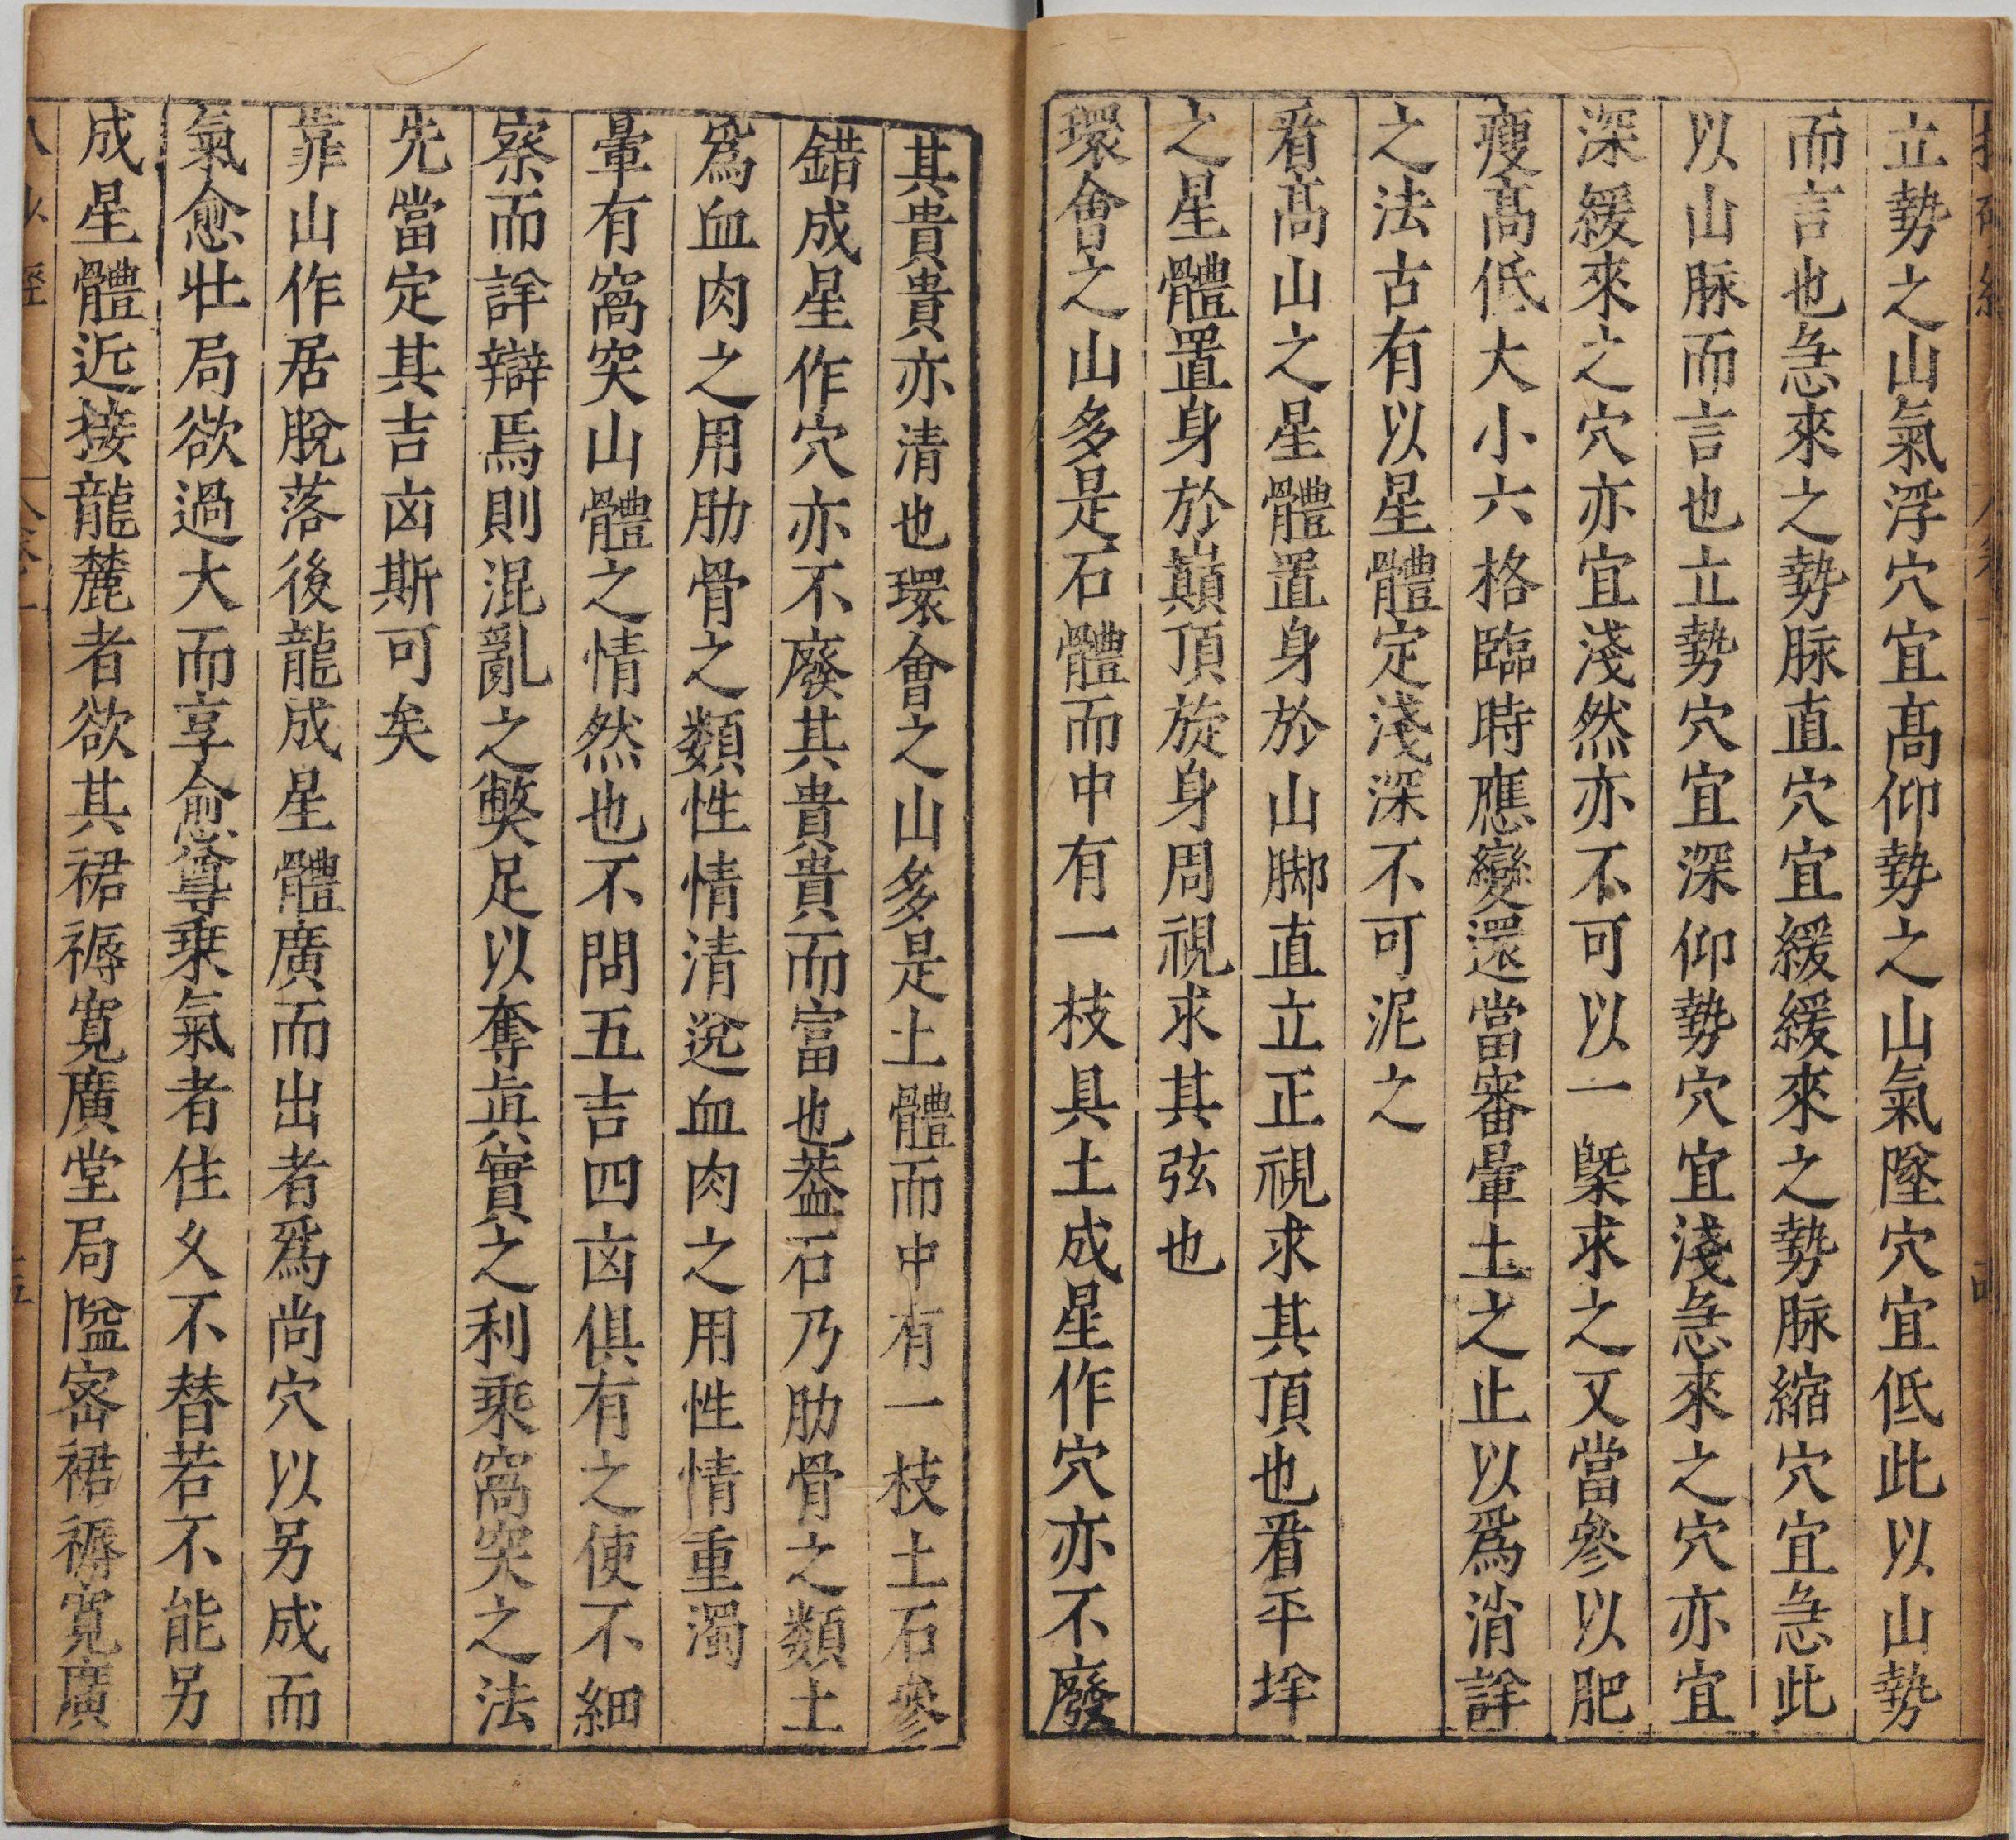 立勢之山氣浮穴宜髙仰勢之山氣墜穴宜低此以山勢
而言也急來之勢脉直穴宜緩緩來之勢脉縮穴宜急此
以山脉而言也立勢穴宜深仰勢穴宜淺急來之穴亦宜
深緩來之穴亦宜淺然亦不可以一槩求之又當參以肥
瘦髙低大小六格臨時應變還當審暈土之止以爲消詳
之法古有以星體定淺深不可泥之
看髙山之星體置身於山脚直立正視求其頂也看平垟
之星體置身於巔頂旋身周視求其弦也
環會之山多是石體而中有一枝具土成星作穴亦不廢
其貴貴亦清也環會之山多是土體而中有一枝土石參
錯成星作穴亦不廢其貴貴而富也葢石乃肋骨之類土
爲血肉之用肋骨之類性情清逸血肉之用性情重濁
暈有窩突山體之情然也不問五吉四凶俱有之使不細
察而詳辯焉則混亂之獘足以奪眞實之利乘窩突之法
先當定其吉凶斯可矣
靠山作居脫落後龍成星體廣而出者爲尚穴以另成而
氣愈壯局欲過大而享愈尊乗氣者住久不替若不能另
成星體近接龍麓者欲其裙褥寬廣堂局隘宻裙褥寬廣